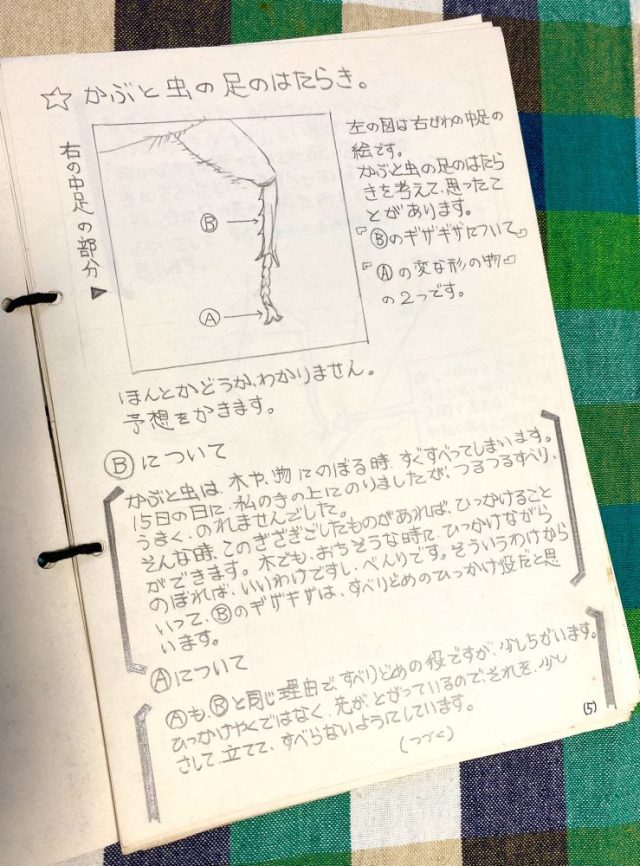 ☆ かぶと虫の足のはたらき。
右の中足の部分▶
Ⓑ
Ⓐ
左の図は右がわの中足の
絵です。
かぶと虫の足のはたら
きを考えて、思ったこ
とがあります。
『Ⓑのギザギザについて』
『Ⓐの変な形の物』
の2つです。
ほんとかどうか、わかりません。
予想をかきます。
Ⓑについて
かぶと虫は、木や、物にのぼる時、すぐすべってしまいます。
15日の日に、私の の上にのりましたが、つるつるすべり、
うまく、のれませんでした。
そんな時、このぎざぎざしたものがあれば、ひっかけること
ができます。木でも、おちそうな時に、ひっかけながら
のぼれば、いいわけですし、べんりです。そういうわけから
いって、Ⓑのギザギザは、すべりどめのひっかけ役だと思
います。
Ⓐについて
Ⓐも、Ⓑと同じ理由で、すべりどめの役ですが、少しちがいます。
ひっかけやくではなく、先が、とがっているので、それを、少し
さして、立てて、すべらないようにしています。
(つづく)
(5)